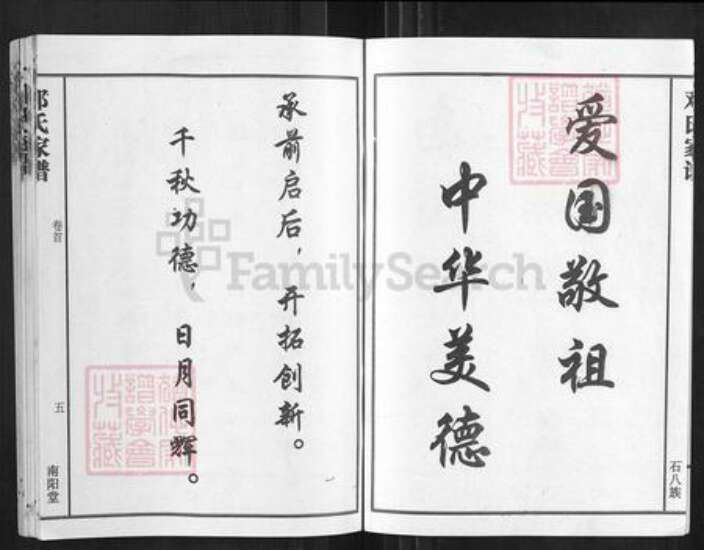 邓氏家谱
石八族
爱国敬祖
中华美德
承前启后，开拓创新。
千秋功德，日月同辉。
邓氏家谱
卷首
五
南阳堂
FamilySearch